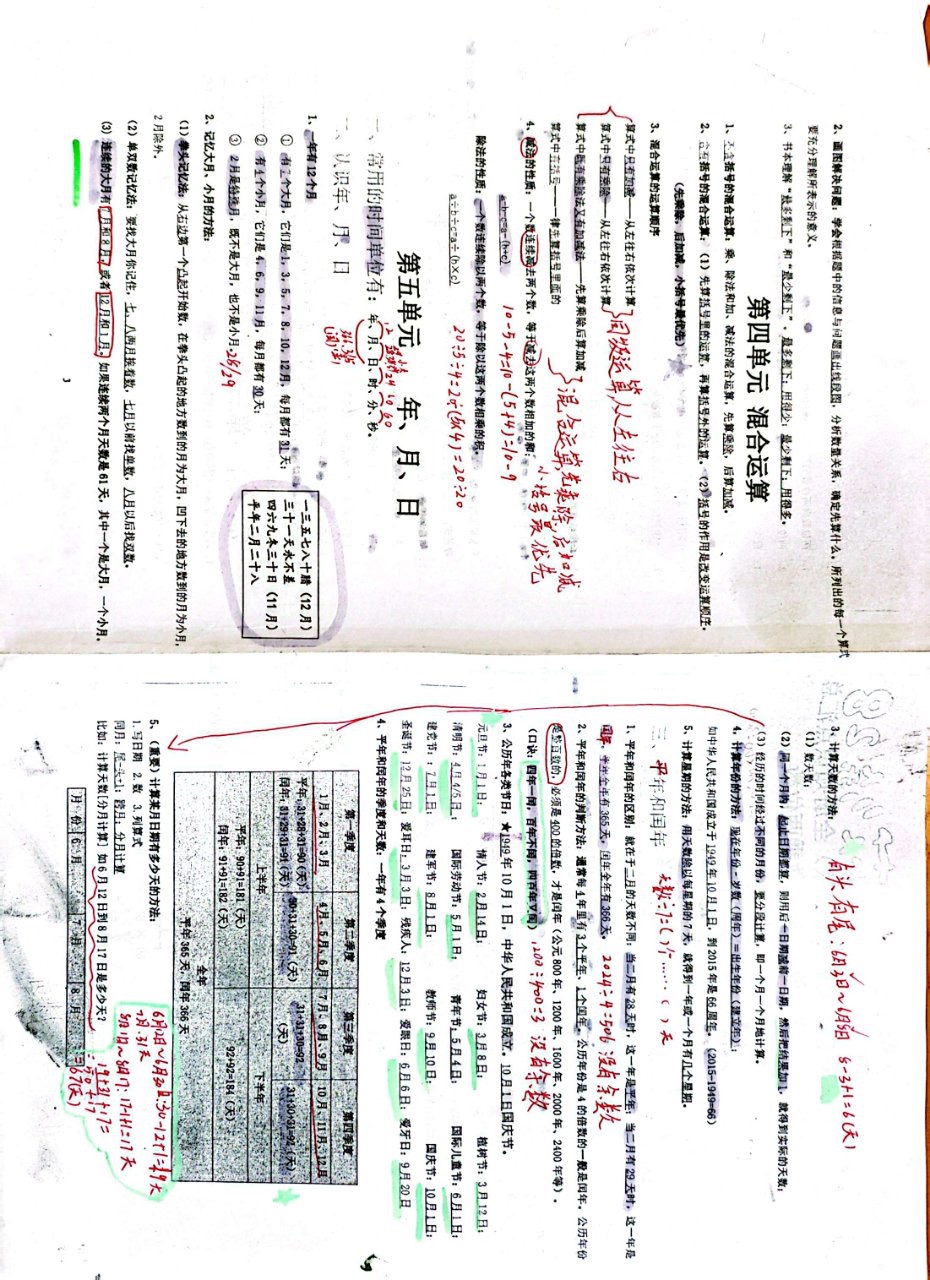 2、画图解决问题：学会根据题中的信息与问题画出线段图，分析数量关系，确定先算什么，所列出的每一个算式
要充分理解所表示的意义。
3、书本理解“最多剩下”和“最少剩下”。最多剩下：用得少；最少剩下：用得多。
第四单元 混合运算
1、不含括号的混合运算：乘、除法和加、减法的混合运算，先算乘除，后算加减。
2、含有括号的混合运算：（1）先算括号里的运算，再算括号外的运算。（2）括号的作用是改变运算顺序。
（先乘除，后加减，小括号最优先）
3、混合运算的运算顺序
算式中只有加减——从左往右依次计算
算式中只有乘除——从左往右依次计算
同级运算从左往右
算式中既有乘除法又有加减法——先算乘除后算加减
算式中有括号——一律先算括号里面的
混合运算先乘除,后加减
小括号最优先
4、减法的性质：一个数连续减去两个数，等于减去这两个数相加的和；
a-b-c=a-(b+c)
10-5-4=10-(5+4)=10-9
除法的性质：一个数连续除以两个数，等于除以这两个数相乘的积。
a÷b÷c=a÷(b×c)
20÷5÷4=20÷(5×4)=20÷20
第五单元 年、月、日
一、常用的时间单位有：年、月、日、时、分、秒。
一、认识年、月、日
1、一年有12个月
① 有7个大月，它们是1、3、5、7、8、10、12月，每月都有31天；
② 有4个小月，它们是4、6、9、11月，每月都有30天；
③ 2月是特殊月，既不是大月，也不是小月。28/29
一三五七八十腊（12月）
三十一天永不差
四六九冬三十日（11月）
平年二月二十八
2、记忆大月、小月的方法：
（1）拳头记忆法：从右边第一个凸起开始数，在拳头凸起的地方数到的月为大月，凹下去的地方数到的月为小月，
2月除外。
（2）单双数记忆法：要找大月你记住：七、八两月挨着数，七月以前找单数，八月以后找双数。
（3）连续的大月有7月和8月，或者12月和1月。如果连续两个月天数是61天，其中一个是大月，一个小月。
3
3、计算天数的方法：
（1）数天数：
有头有尾：
8-3+1=6(天)
（2）同一个月内：起止日期想算，则用后一日期减前一日期，然后把结果加1，就得到实际的天数；
（3）经历的时间经过不同的月份，要分段计算，即一个月一个月地计算。
4、计算年份的方法：现在年份-岁数（周年）=出生年份（建立年）；
如中华人民共和国成立于1949年10月1日，到2015年是66周年。（2015-1949=66）
5、计算星期的方法：用天数除以每星期的7天，就得到一年或一个月有几个星期。
天数÷7=( )个……( )天
三、平年和闰年
1、平年和闰年的区别：就在于二月的天数不同；当二月有28天时，这一年是平年；当二月有29天时，这一年是
闰年。平年全年有365天，闰年全年有366天。
2024÷4=506 没有余数
2、平年和闰年的判断方法：通常每4年里有3个平年、1个闰年。公历年份是4的倍数的一般是闰年。公历年份
是整百数的，必须是400的倍数，才是闰年（公元800年、1200年、1600年、2000年、2400年等）。
（口诀：四年一闰，百年不闰，四百年又闰）
1200÷400=3 没有余数
3、公历年各类节日：★1949年10月1日，中华人民共和国成立。10月1日国庆节。
元旦节：1月1日； 情人节：2月14日； 妇女节：3月8日； 植树节：3月12日；
清明节：4月4/5日； 国际劳动节：5月1日； 青年节：5月4日； 国际儿童节：6月1日；
建党节：7月1日； 建军节：8月1日； 教师节：9月10日； 国庆节：10月1日；
圣诞节：12月25日；爱耳日：3月3日；残疾人：12月3日；爱眼日：6月6日；爱牙日：9月20日
4、平年和闰年的季度和天数：一年有4个季度
第一季度 第二季度 第三季度 第四季度
1月、2月、3月 4月、5月、6月 7月、8月、9月 10月、11月、12月
平年：31+28+31=90（天） 30+31+30=91（天） 31+31+30=92（天） 31+30+31=92（天）
闰年：31+29+31=91（天）
上半年 下半年
平年：90+91=181（天） 92+92=184（天）
闰年：91+91=182（天）
全年
平年365天，闰年366天
5、（重要）计算某月日期有多少天的方法：
1.写日期 2.数 3.列算式
同月：尾-头+1；跨月：分月计算
比如：计算天数[分月计算] 如6月12日到8月17日是多少天？
6月12~6月30日:30-12+1=19天
7月:31天
8月1日~8月17:17-1+1=17天
19+31+17=
=50+17
=67(天)
月份 6月 7月 8月